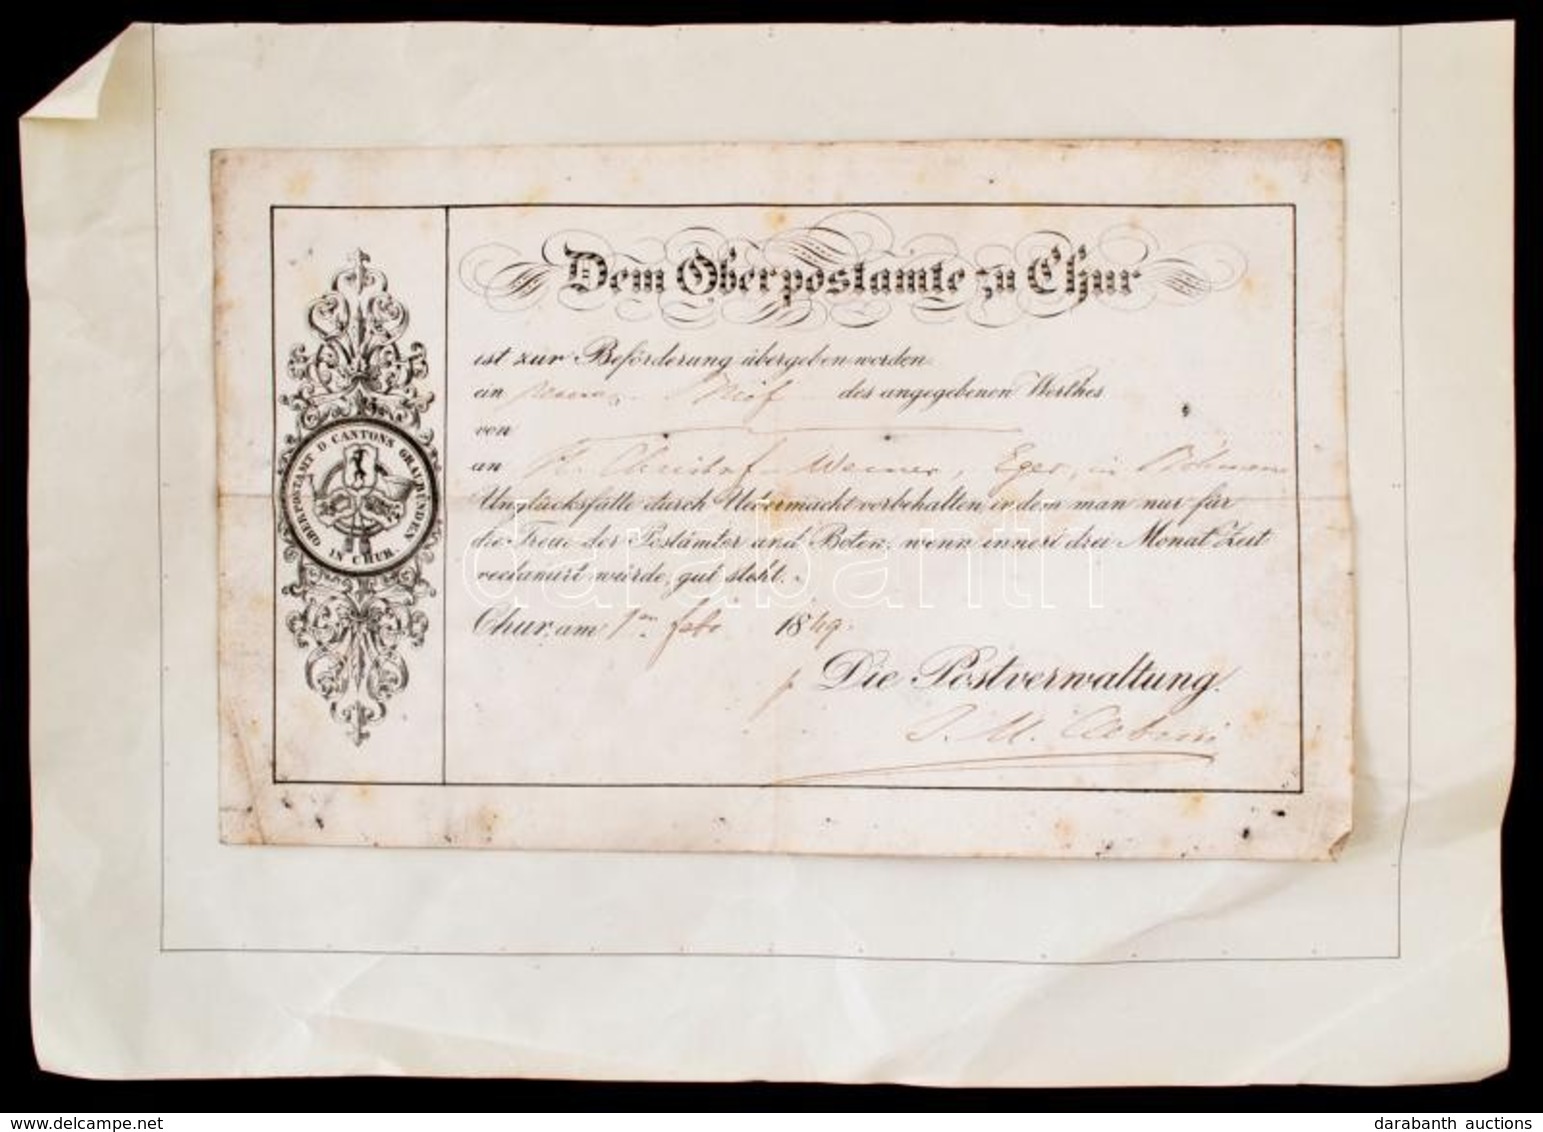 Dem Oberpostamte zu Chur
ist zur Beförderung übergeben worden
ein Brief des angegebenen Werthes
von
an Christof Werner, Eger, in Böhmen
Unglücksfälle durch Uebermacht vorbehalten in dem man nur für
die Treue der Postämter und Boten, wenn innert drei Monat Zeit
reclamirt würde, gut steht.
Chur, am 1ten Feb 1849.
p. Die Postverwaltung.
J. M.
OBERPOSTAMT D CANTONS GRAUBÜNDEN
IN CHUR.
darabanth
darabanth auctions